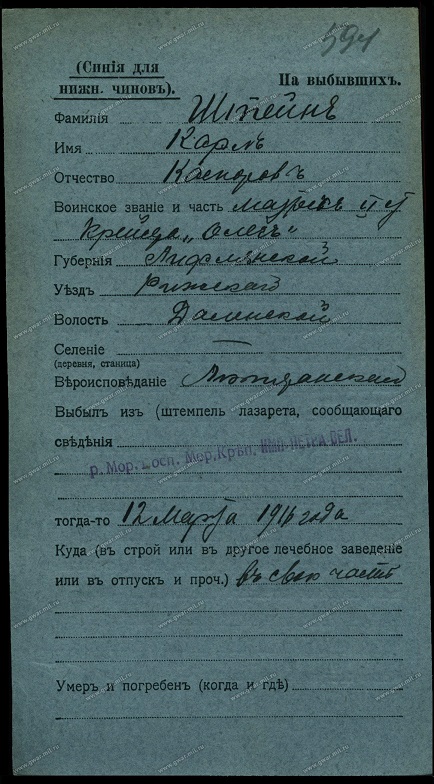 594
(Синія для
нижн. чиновъ).
На выбывшихъ.
Фамилія Штейнъ
Имя Карлъ
Отчество Каспровъ
Воинское званіе и часть матросъ II ст
Крейсера „Олегъ"
Губернія Лифлянской
Уѣздъ Рижскаго
Волость Даленской
Селеніе —
(деревня, станица)
Вѣроисповѣданіе Лютеранскаго
Выбылъ изъ (штемпель лазарета, сообщающаго
свѣдѣнія
р. Мор. Госп. Мор. Крѣп. ИМП. ПЕТРА ВЕЛ.
тогда-то 12 Марта 1916 года
Куда (въ строй или въ другое лечебное заведеніе
или въ отпускъ и проч.) въ свою часть
Умеръ и погребенъ (когда и гдѣ)
www.gwar.mil.ru